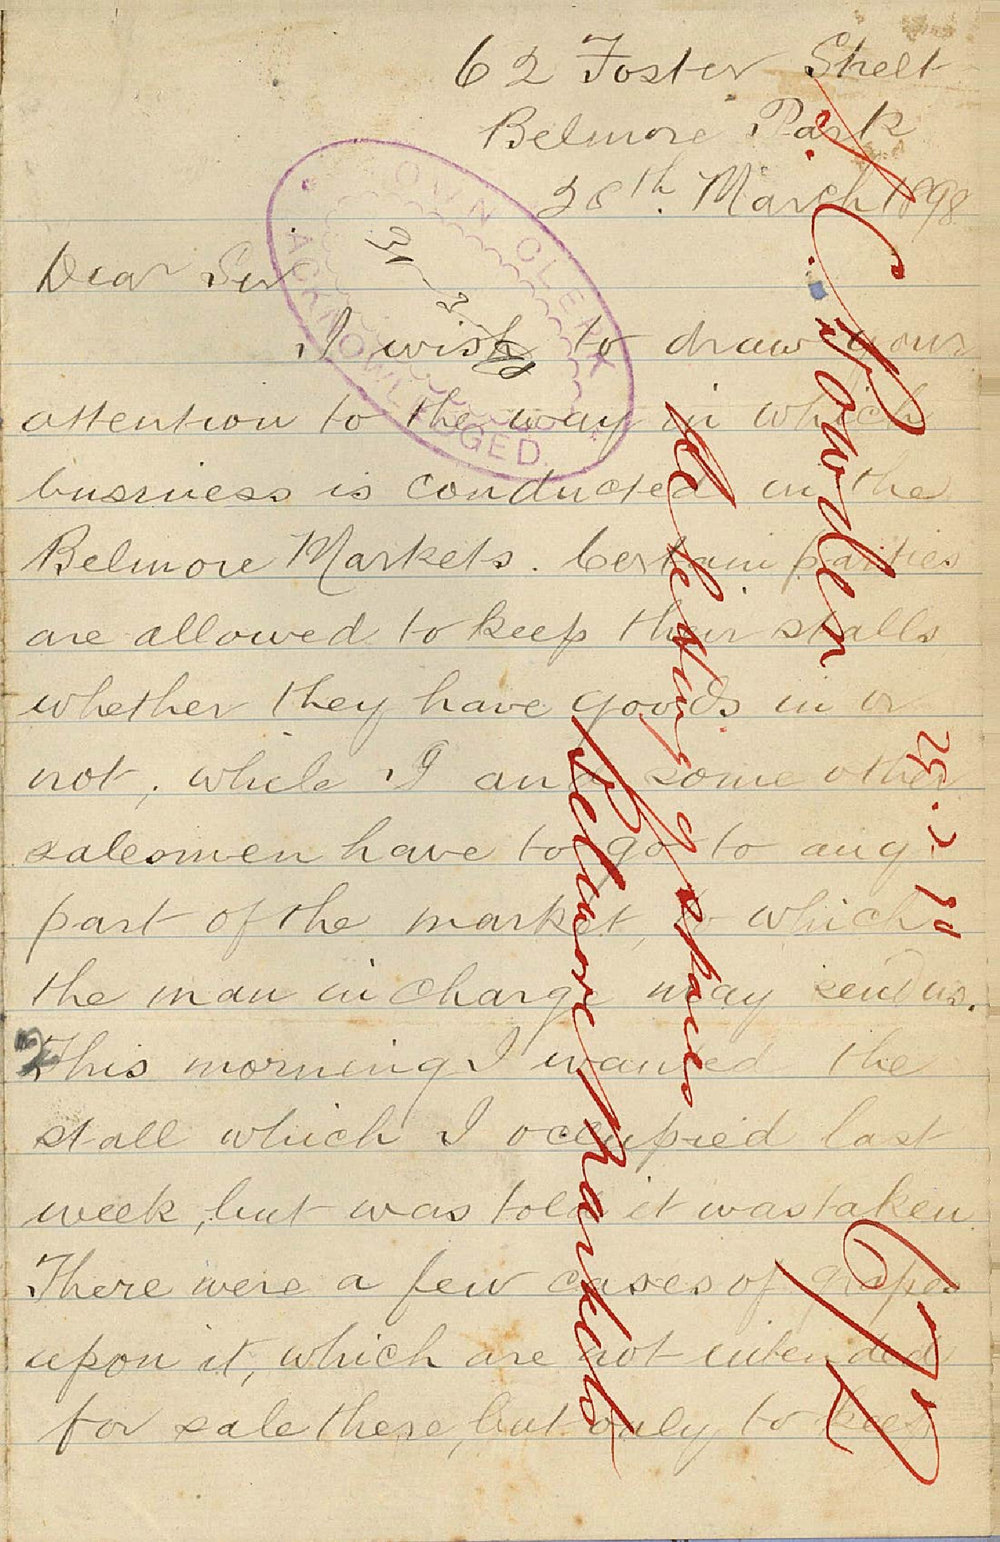 62 Foster Street
Belmore Park
28th. March 1898
Dear Sir
I wish to draw your
attention to the way in which
business is conducted in the
Belmore Markets. Certain parties
are allowed to keep their stalls
whether they have goods in or
not, while I and some other
salesmen have to go to any
part of the market, to which
the man in charge may send us.
This morning I wanted the
stall which I occupied last
week, but was told it was taken
There were a few cases of grapes
upon it, which are not intended
for sale there, but only to keep
TOWN CLERK
31-3-98
ACKNOWLEDGED.
J. C. Bowden
re letting of spaces
Belmore Markets
29.3.98
2